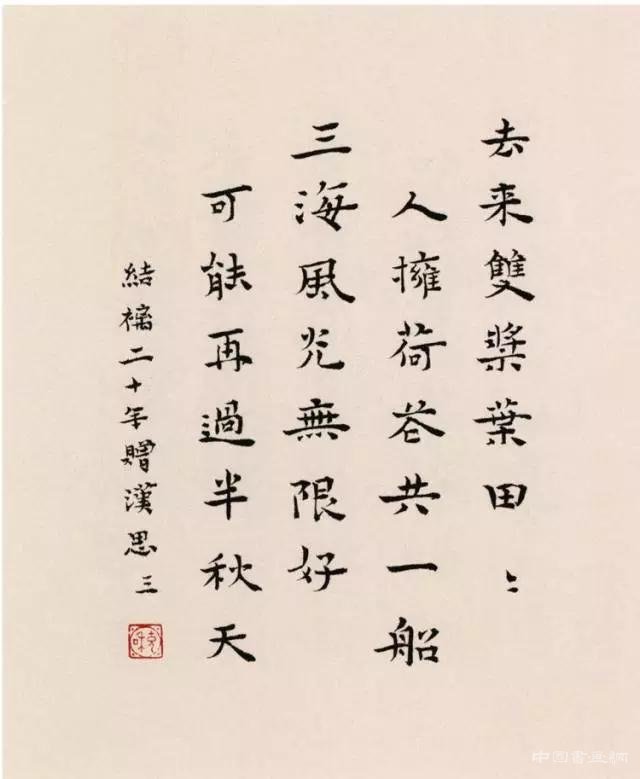 去来雙槳葉田〻
人擁荷花共一船
三海風光無限好
可能再過半秋天
結褵二十年贈漢思 三
充和
中国書画網